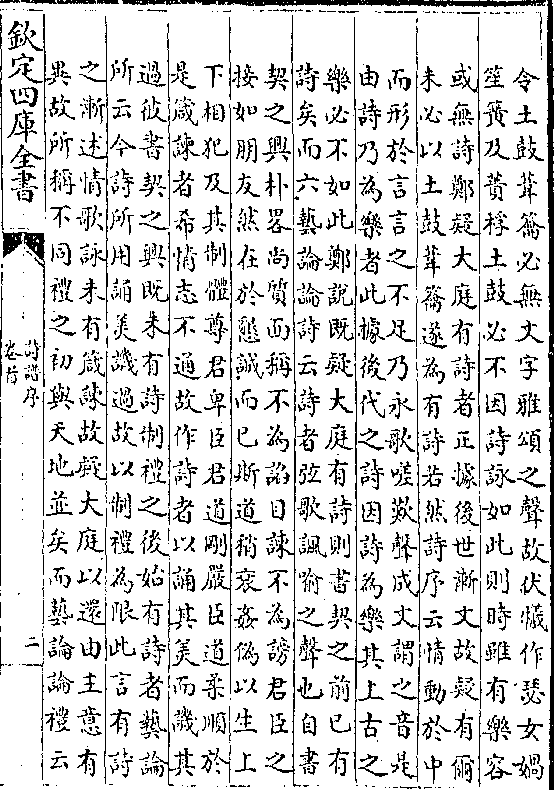 令土鼓葦籥必無文字雅頌之聲故伏犧作瑟女媧
笙簧及蕢桴土鼓必不因詩詠如此則時雖有樂容
或無詩鄭疑大庭有詩者正據後世漸文故疑有爾
未必以土鼓葦籥遂為有詩若然詩序云情動於中
而形於言言之不足乃永歌嗟歎聲成文謂之音是
由詩乃為樂者此據後代之詩因詩為樂其上古之
樂必不如此鄭說既疑大庭有詩則書契之前已有
詩矣而六藝論論詩云詩者弦歌諷喻之聲也自書
契之興朴畧尚質面稱不為諂目諫不為謗君臣之
接如朋友然在於懇誠而已斯道稍衰姦偽以生上
下相犯及其制禮尊君卑臣君道剛嚴臣道柔順於
是箴諫者希情志不通故作詩者以誦其美而譏其
過彼書契之興既未有詩制禮之後始有詩者藝論
所云今詩所用誦美譏過故以制禮為限此言有詩
之漸述情歌詠未有箴諫故疑大庭以還由主意有
異故所稱不同禮之初與天地並矣而藝論論禮云
欽定四庫全書
詩譜序
卷首
二